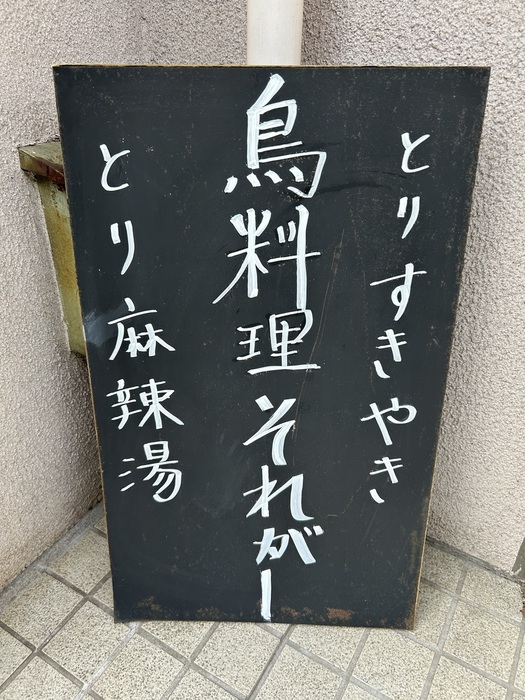 とりすきやき
鳥料理それがー
とり麻辣湯